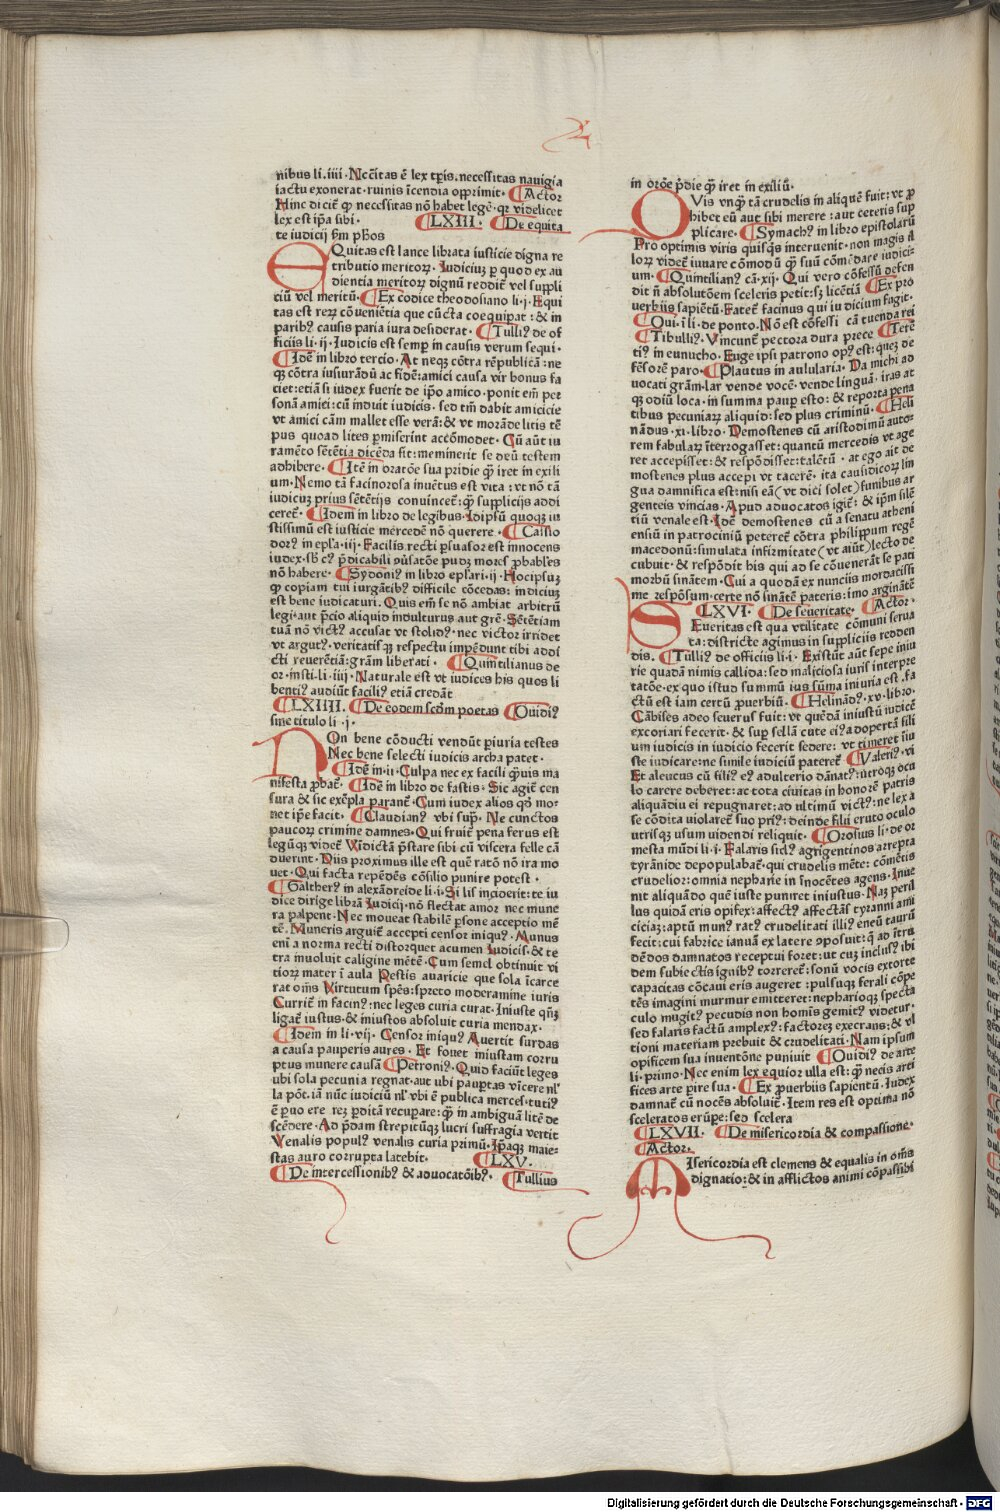 nibus li.iiii. Necc̄itas ē lex tp̄is.necessitas nauigia
iactu exonerat.ruinis īcendia opprimit. Actor
Hinc dicit̄ ꝙ necessitas nō habet legē.qꝛ videlicet
lex est ip̄a sibi. LXIII. De equita
te iudicij ẜm ph̄os
EQuitas est lance librata iusticie digna re
tributio meritoꝝ. Iudiciuꝫ ꝑ quod ex au
dientia meritoꝝ dignū reddit̄ vel suppli
ciū vel meritū. Ex codice theodosiano li.j. Equi
tas est reꝝ cōueniētia que cūcta coequipat: & in
paribꝰ causis paria iura desiderat. Tulliꝰ de of
ficiis li.ij. Iudicis est semꝑ in causis verum sequi.
Idē in libro tercio. At neqꝫ cōtra rēpublicā: ne
qꝫ cōtra iusiurādū ac fidē: amici causa vir bonus fa
ciet: etiā si iudex fuerit de ip̄o amico. ponit em̄ per
sonā amici: cū induit iudicis. sed tm̄ dabit amicicie
vt amici cām mallet esse verā: & vt morāde litis tē
pus quoad lites ꝑmiserint accōmodet. Cū aūt iu
ramēto sētētia dicēda fit: meminerit se deū testem
adhibere. Itē in oratōe sua pridie ꝙ̄ iret in exili
um. Nemo tā facinorosa inuētus est vita: vt nō tā
iudicuꝫ prius sētētijs conuincet̄: ꝙ̄ supplicijs addi
ceret̄. Idem in libro de legibus. Idipsū quoqꝫ iu
stissimū est iusticie mercedē nō querere. Cassio
dorꝰ in ep̄la.iij. Facilis recti ꝑsuasor est innocens
iudex. sb̄ cꝰ p̄dicabili ↄuersatōe pudꝫ mores ꝓbabiles
nō habere. Sydoniꝰ in libro epl̄ari.ij. Hocipsuꝫ
ꝙ copiam tui iurgātibꝰ difficile cōcedas: indiciuꝫ
est bene iudicaturi. Quis em̄ se nō ambiat arbitrū
legi. aut p̄cio aliquid indulturus aut grē. Sētētiam
tuā nō victꝰ accusat vt stolidꝰ. nec victor irridet
vt argutꝰ. veritatisqꝫ respectu impēdunt tibi addi
cti reuerētiā: grām liberati. Quintilianus de
or.insti.li.iiij. Naturale est vt iudices his quos li
bentiꝰ audiūt faciliꝰ etiā credāt
LXIIII. De eodem scd̄m poetas Ouidiꝰ
sine titulo li.j.
NOn bene cōducti vendūt ꝑiuria testes
Nec bene selecti iudicis archa patet.
Idē in.ii. Culpa nec ex facili ꝙ̄uis ma
nifesta ꝓbat̄. Idē in libro de fastis. Sic agit̄ cen
sura & sic exēpla parant̄. Cum iudex alios qd̄ mo
net ip̄e facit. Claudianꝰ vbi suꝑ. Ne cunctos
paucoꝝ crimine damnes. Qui fruit̄ pena ferus est
legūqꝫ videt̄ Vidictā p̄stare sibi cū viscera felle cā
duerint. Diis proximus ille est quē ratō nō ira mo
uet. Qui facta repēdēs cōsilio punire potest.
Galtherꝰ in alexādreide li.i. Si lis inciderit: te iu
dice dirige librā Iudicij. nō flectat amor nec mune
ra palpent. Nec moueat stabilē ꝑsone acceptio mē
tē. Muneris arguit̄ accepti censor iniquꝰ. Munus
eni a norma recti distorquet acumen Iudicis. & te
tra inuoluit caligine mētē. Cum semel obtinuit vi
tioꝝ mater ī aula Pestis auaricie que sola īcarce
rat om̄s Virtutum spēs: spreto moderamine iuris
Currit̄ in facinꝰ: nec leges curia curat. Iniuste qn̄qꝫ
ligat̄ iustus. & iniustos absoluit curia mendax.
Idem in li.vij. Censor iniquꝰ Auertit surdas
a causa pauperis aures. Et fouet iniustam corru
ptus munere causā Petroniꝰ. Quid faciūt leges
ubi sola pecunia regnat. aut ubi pauꝑtas vīcere nlꝉ
la pōt. iā nūc iudiciū nlꝉ vbi ē publica merces. tutiꝰ
ē ꝑuo ere reꝝ ꝑditā recupare: ꝙ̄ in ambiguā litē de
scēdere. Ad p̄dam strepitūqꝫ lucri suffragia vertit
Venalis populꝰ venalis curia primū. Ip̄aqꝫ maie
stas auro corrupta latebit. LXV.
De intercessionibꝰ & aduocatōibꝰ. Tullius
in orōe p̄die ꝙ̄ iret in exiliū.
QVis vnqꝫ tā crudelis in aliquē fuit: vt ꝓ
hibet eū aut sibi merere: aut ceteris sup
plicare. Symachꝰ in libro epistolarū
Pro optimis viris quisqꝫ interuenit. non magis il
loꝝ videt̄ iuuare cōmodū ꝙ̄ suū cōmēdare iudici
um. Quintilianꝰ cā.xij. Qui vero cōfessū defen
dit n̄ absolutōem sceleris petit: sꝫ licētiā Ex pro
uerbiis sapiētū. Fatet̄ facinus qui iudicium fugit.
Oui.ī li. de ponto. Nō est cōfessi cā tuenda rei
Tibullꝰ. Vincunt̄ pectora dura prece Terē
tiꝰ in eunucho. Euge ipsi patrono opꝰ est: quez de
fēsorē paro. Plautus in aulularia. Da michi ad
uocati grām. lar vende vocē. vende linguā. iras at
qꝫ odiū loca. in summa pauꝑ esto: & reporta pena
tibus pecuniaꝝ aliquid: sed plus criminū. Heli
nādus.xi.libro. Demostenes cū aristodimū auto
rem fabularꝫ īterrogasset: quantū mercedis vt age
ret accepisset: & respōdisset: talētū. at ego ait de
mostenes plus accepi vt tacerē. ita causidicoꝝ lin
gua damnifica est: nisi eā (vt dici solet) funibus ar
genteis vincias. Apud aduocatos igit̄: & ip̄m silē
tiū venale est. Idē demostenes cū a senatu atheni
ensiū in patrociniū peteret̄ cōtra philippum regē
macedonū: simulata infirmitate (vt aiūt) lecto de
cubuit. & respōdit his qui ad se cōuenerāt se pati
morbū sināntem. Cui a quodā ex nunciis mordacissi
me respōsum. certe nō sinātē pateris: imo arginātē
LXVI. De seueritate. Actor.
SEueritas est qua vtilitate cōmuni serua
ta: districte agimus in suppliciis redden
dis. Tulliꝰ de officiis li.i. Existūt aūt sepe iniu
rie quadā nimis callida: sed maliciosa iuris interpre
tatōe. ex quo istud summū ius sūma iniuria est. fa
ctū est iam certū ꝓuerbiū. Helinādꝰ.xv.libro.
Cābises adeo seuerus fuit: vt quēdā iniustū iudicē
excoriari fecerit. & suꝑ sellā cute eiꝰ adopertā fili
um iudicis in iudicio fecerit sedere: vt timeret siu
ste iudicare: ne simile iudiciū pateret̄ Valeriꝰ.vi
Et aleucus cū filiꝰ eꝰ adulterio dānatꝰ: utroqꝫ ocu
lo carere deberet: ac tota ciuitas in honorē patris
aliquādiu ei repugnaret: ad ultimū victꝰ: ne lex a
se cōdita violaret̄ suo priꝰ: deinde filii eruto oculo
utrisqꝫ usum uidendi reliquit. Orosius li. de or
mesta mūdi li.i. Falaris siclꝰ agrigentinos arrepta
tyrānide depopulabat̄. qui crudelis mēte: cōmētis
crudelior: omnia nepharie in īnocētes agens. Inue
nit aliquādo quē iuste puniret iniustus. Naꝫ peril
lus quidā eris opifex: affectꝰ affectās̄ tyranni ami
ciciaꝫ: aptū munꝰ ratꝰ crudelitati illiꝰ eneū taurū
fecit: cui fabrice ianuā ex latere ↄposuit: ꝙ ad ītru
dēdos damnatos receptui foret: ut cuꝫ inclusꝰ ibi
dem subiectis ignibꝰ torreret̄: sonū vocis extorte
capacitas cōcaui eris augeret: pulsuqꝫ ferali cōpe
tēs imagini murmur emitteret: nephariòqꝫ specta
culo mugitꝰ pecudis non homīs gemitꝰ videtur.
sed falaris factū amplexꝰ: factoreꝫ execrans: & vl
tioni materiam prebuit & crudelitati. Nam ipsum
opificem sua inuentōne puniuit Ouidiꝰ de arte
li.primo. Nec enim lex equior ulla est: ꝙ̄ necis arti
fices arte ꝑire sua. Ex ꝓuerbiis sapientū. Iudex
damnat̄ cū nocēs absoluit̄. Item res est optima nō
sceleratos erūpe: sed scelera
LXVII. De misericordia & compassione.
Actor.
MIsericordia est clemens & equalis in om̄s
dignatio: & in afflictos animi cōpassibi
Digitalisierung gefördert durch die Deutsche Forschungsgemeinschaft - DFG